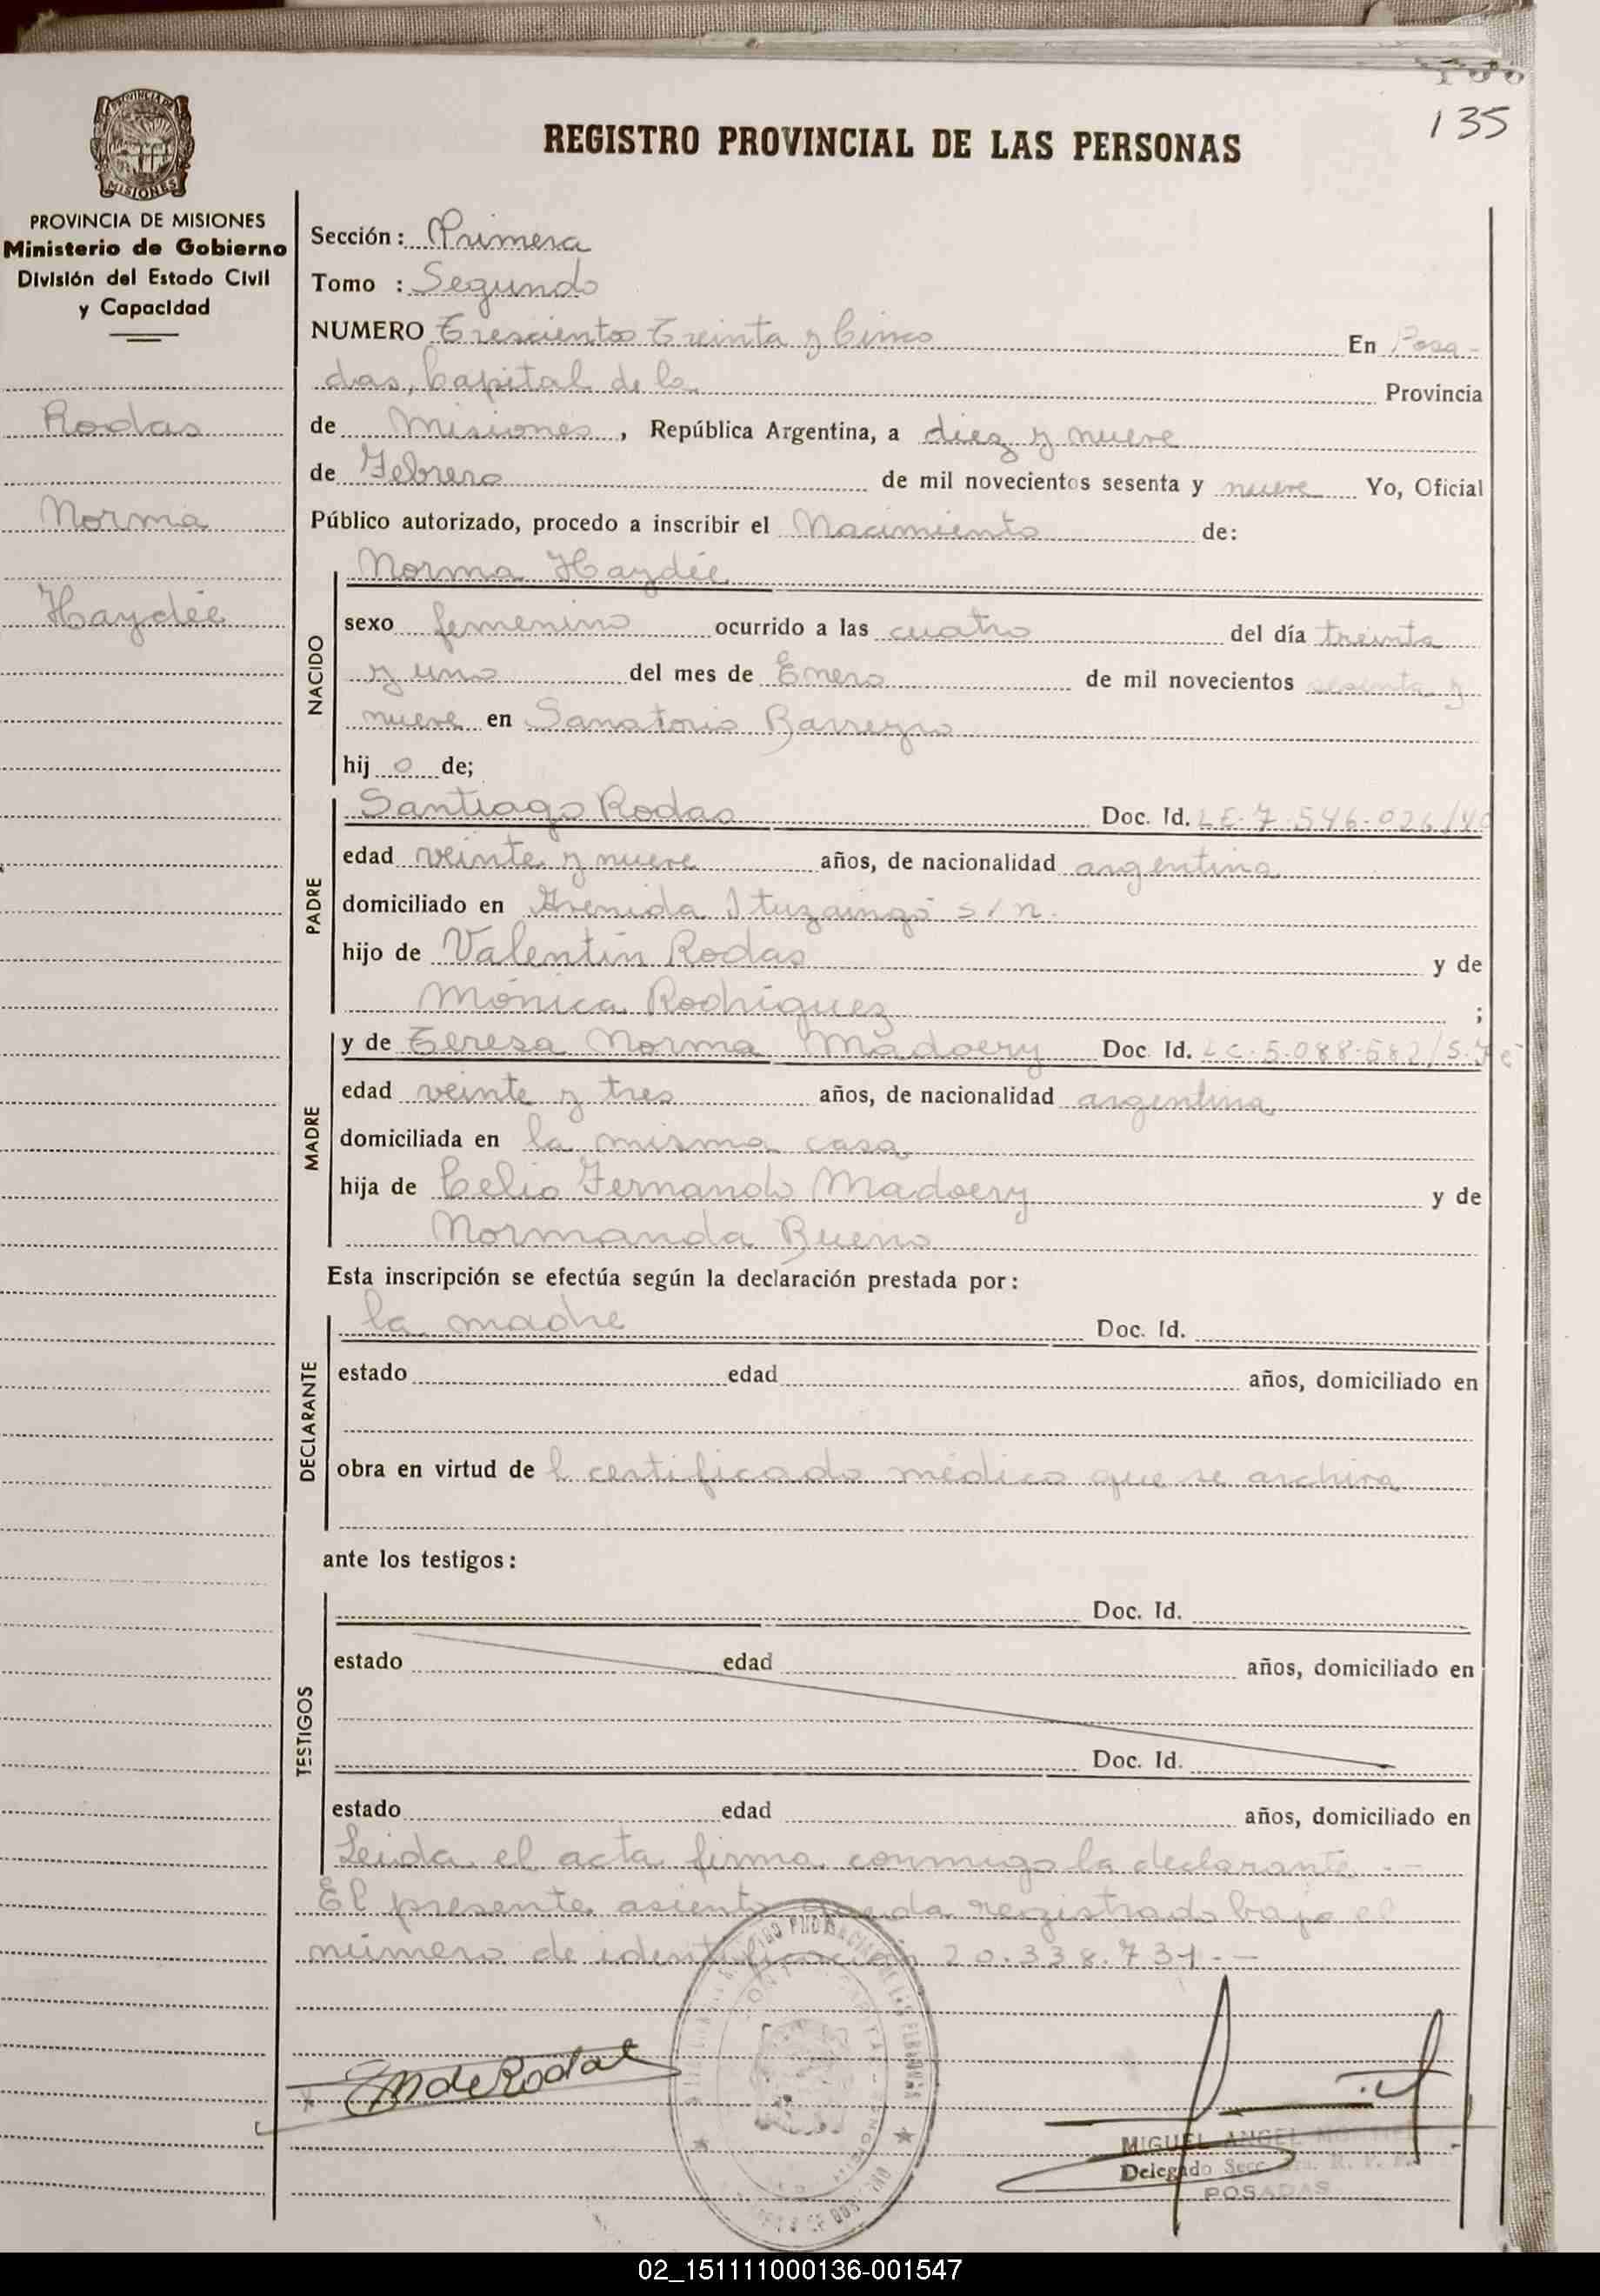 135
REGISTRO PROVINCIAL DE LAS PERSONAS
PROVINCIA DE MISIONES
Ministerio de Gobierno
División del Estado Civil
y Capacidad
Rodas
Norma
Haydée
Sección: Primera
Tomo : Segundo
NUMERO Trescientos Treinta y Cinco En Posa-
das, Capital de la Provincia
de Misiones, República Argentina, a diez y nueve
de Febrero de mil novecientos sesenta y nueve Yo, Oficial
Público autorizado, procedo a inscribir el Nacimiento de:
NACIDO
Norma Haydée
sexo femenino ocurrido a las cuatro del día treinta
y uno del mes de Enero de mil novecientos sesenta y
nueve en Sanatorio Barreyro
hij o de;
PADRE
Santiago Rodas Doc. Id. LE. 7.546.026/40
edad veinte y nueve años, de nacionalidad argentina
domiciliado en Avenida Ituzaingó s/n.
hijo de Valentín Rodas y de
Mónica Rodríguez ;
MADRE
y de Teresa Norma Madoery Doc. Id. LC. 5.088.682/S.Fé
edad veinte y tres años, de nacionalidad argentina
domiciliada en la misma casa
hija de Celio Fernando Madoery y de
Normanda Bueno
Esta inscripción se efectúa según la declaración prestada por:
DECLARANTE
la madre Doc. Id.
estado edad años, domiciliado en
obra en virtud de l certificado médico que se archiva
ante los testigos:
TESTIGOS
Doc. Id.
estado edad años, domiciliado en
Doc. Id.
estado edad años, domiciliado en
Leida el acta firma conmigo la declarante.-
El presente asiento queda registrado bajo el
número de identificación 20.338.731.-
MdeRodas
MIGUEL ANGEL
Delegado Secc. 1ra. R. P. P.
POSADAS
02_151111000136-001547